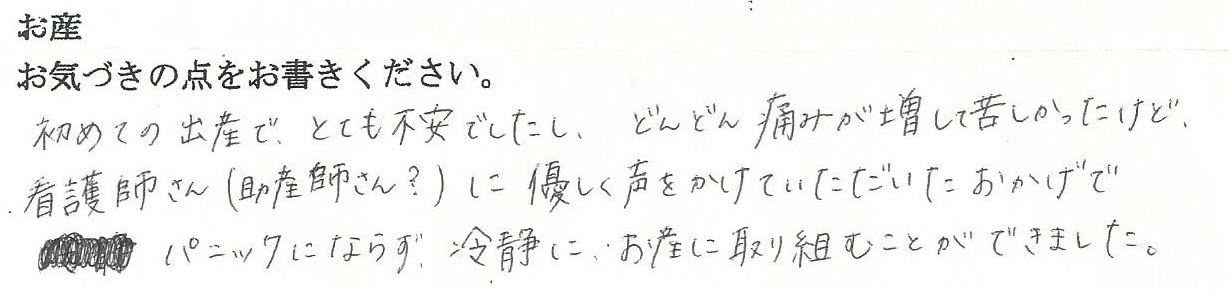 お産
お気づきの点をお書きください。
初めての出産で、とても不安でしたし、どんどん痛みが増して苦しかったけど、
看護師さん(助産師さん?)に優しく声をかけていただいたおかげで
パニックにならず、冷静に、お産に取り組むことができました。